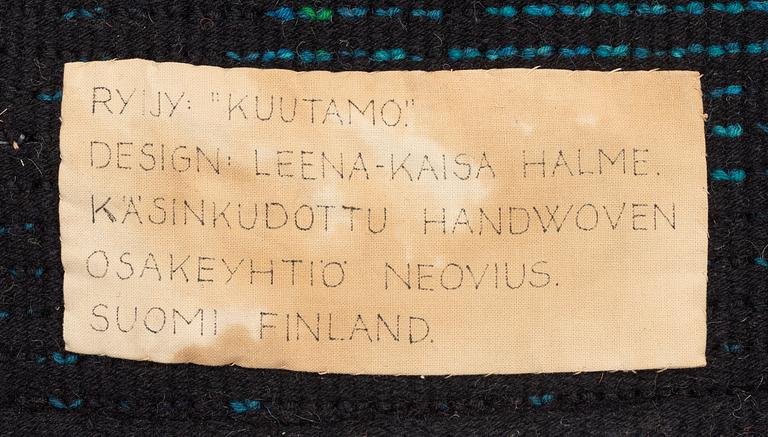 RYIJY: "KUUTAMO."
DESIGN: LEENA-KAISA HALME.
KÄSINKUDOTTU HANDWOVEN
OSAKEYHTIÖ NEOVIUS.
SUOMI FINLAND.